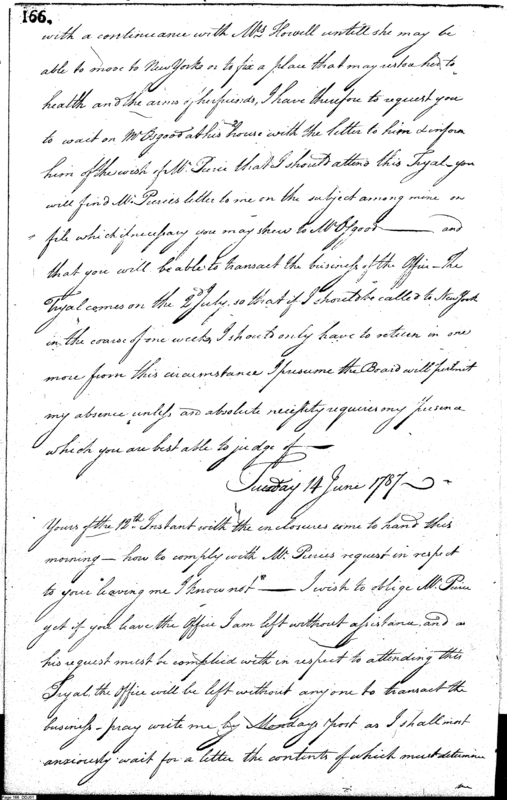 166.
with a continueance with Mrs Howell untill she may be
able to move to New York or to fix a place that may restore her to
health and the arms of her friends, I have therefore to request you
to wait on Mr Osgood at his house with the letter to him & inform
him of the wish of Mr. Pierce that I should attend this Tryal you
will find Mr. Pierces letter to me on the subject among mine on
file which if necessary you may shew to Mr Osgood — and
that you will be able to transact the business of the Office – The
Tryal comes on the 2d July, so that if I should be called to New York
in the course of one week, I should only have to return in one
more from this circumstance I presume the Board will permit
my absence unless an absolute necessity requires my presence
which you are best able to judge of —
14 June 1787 —
Yours of the 12th. Instant with the inclosures come to hand this
morning — how to comply with Mr. Pierces request in respect
to your leaving me I know not — I wish to oblige Mr. Pierce
yet if you leave the Office I am left without assistance, and as
his request must be complied with in respect to attending this
Tryal, the Office will be left without any one to transact the
business – pray write me by Mondays post as I shall most
anxiously wait for a letter the contents of which must determine
me